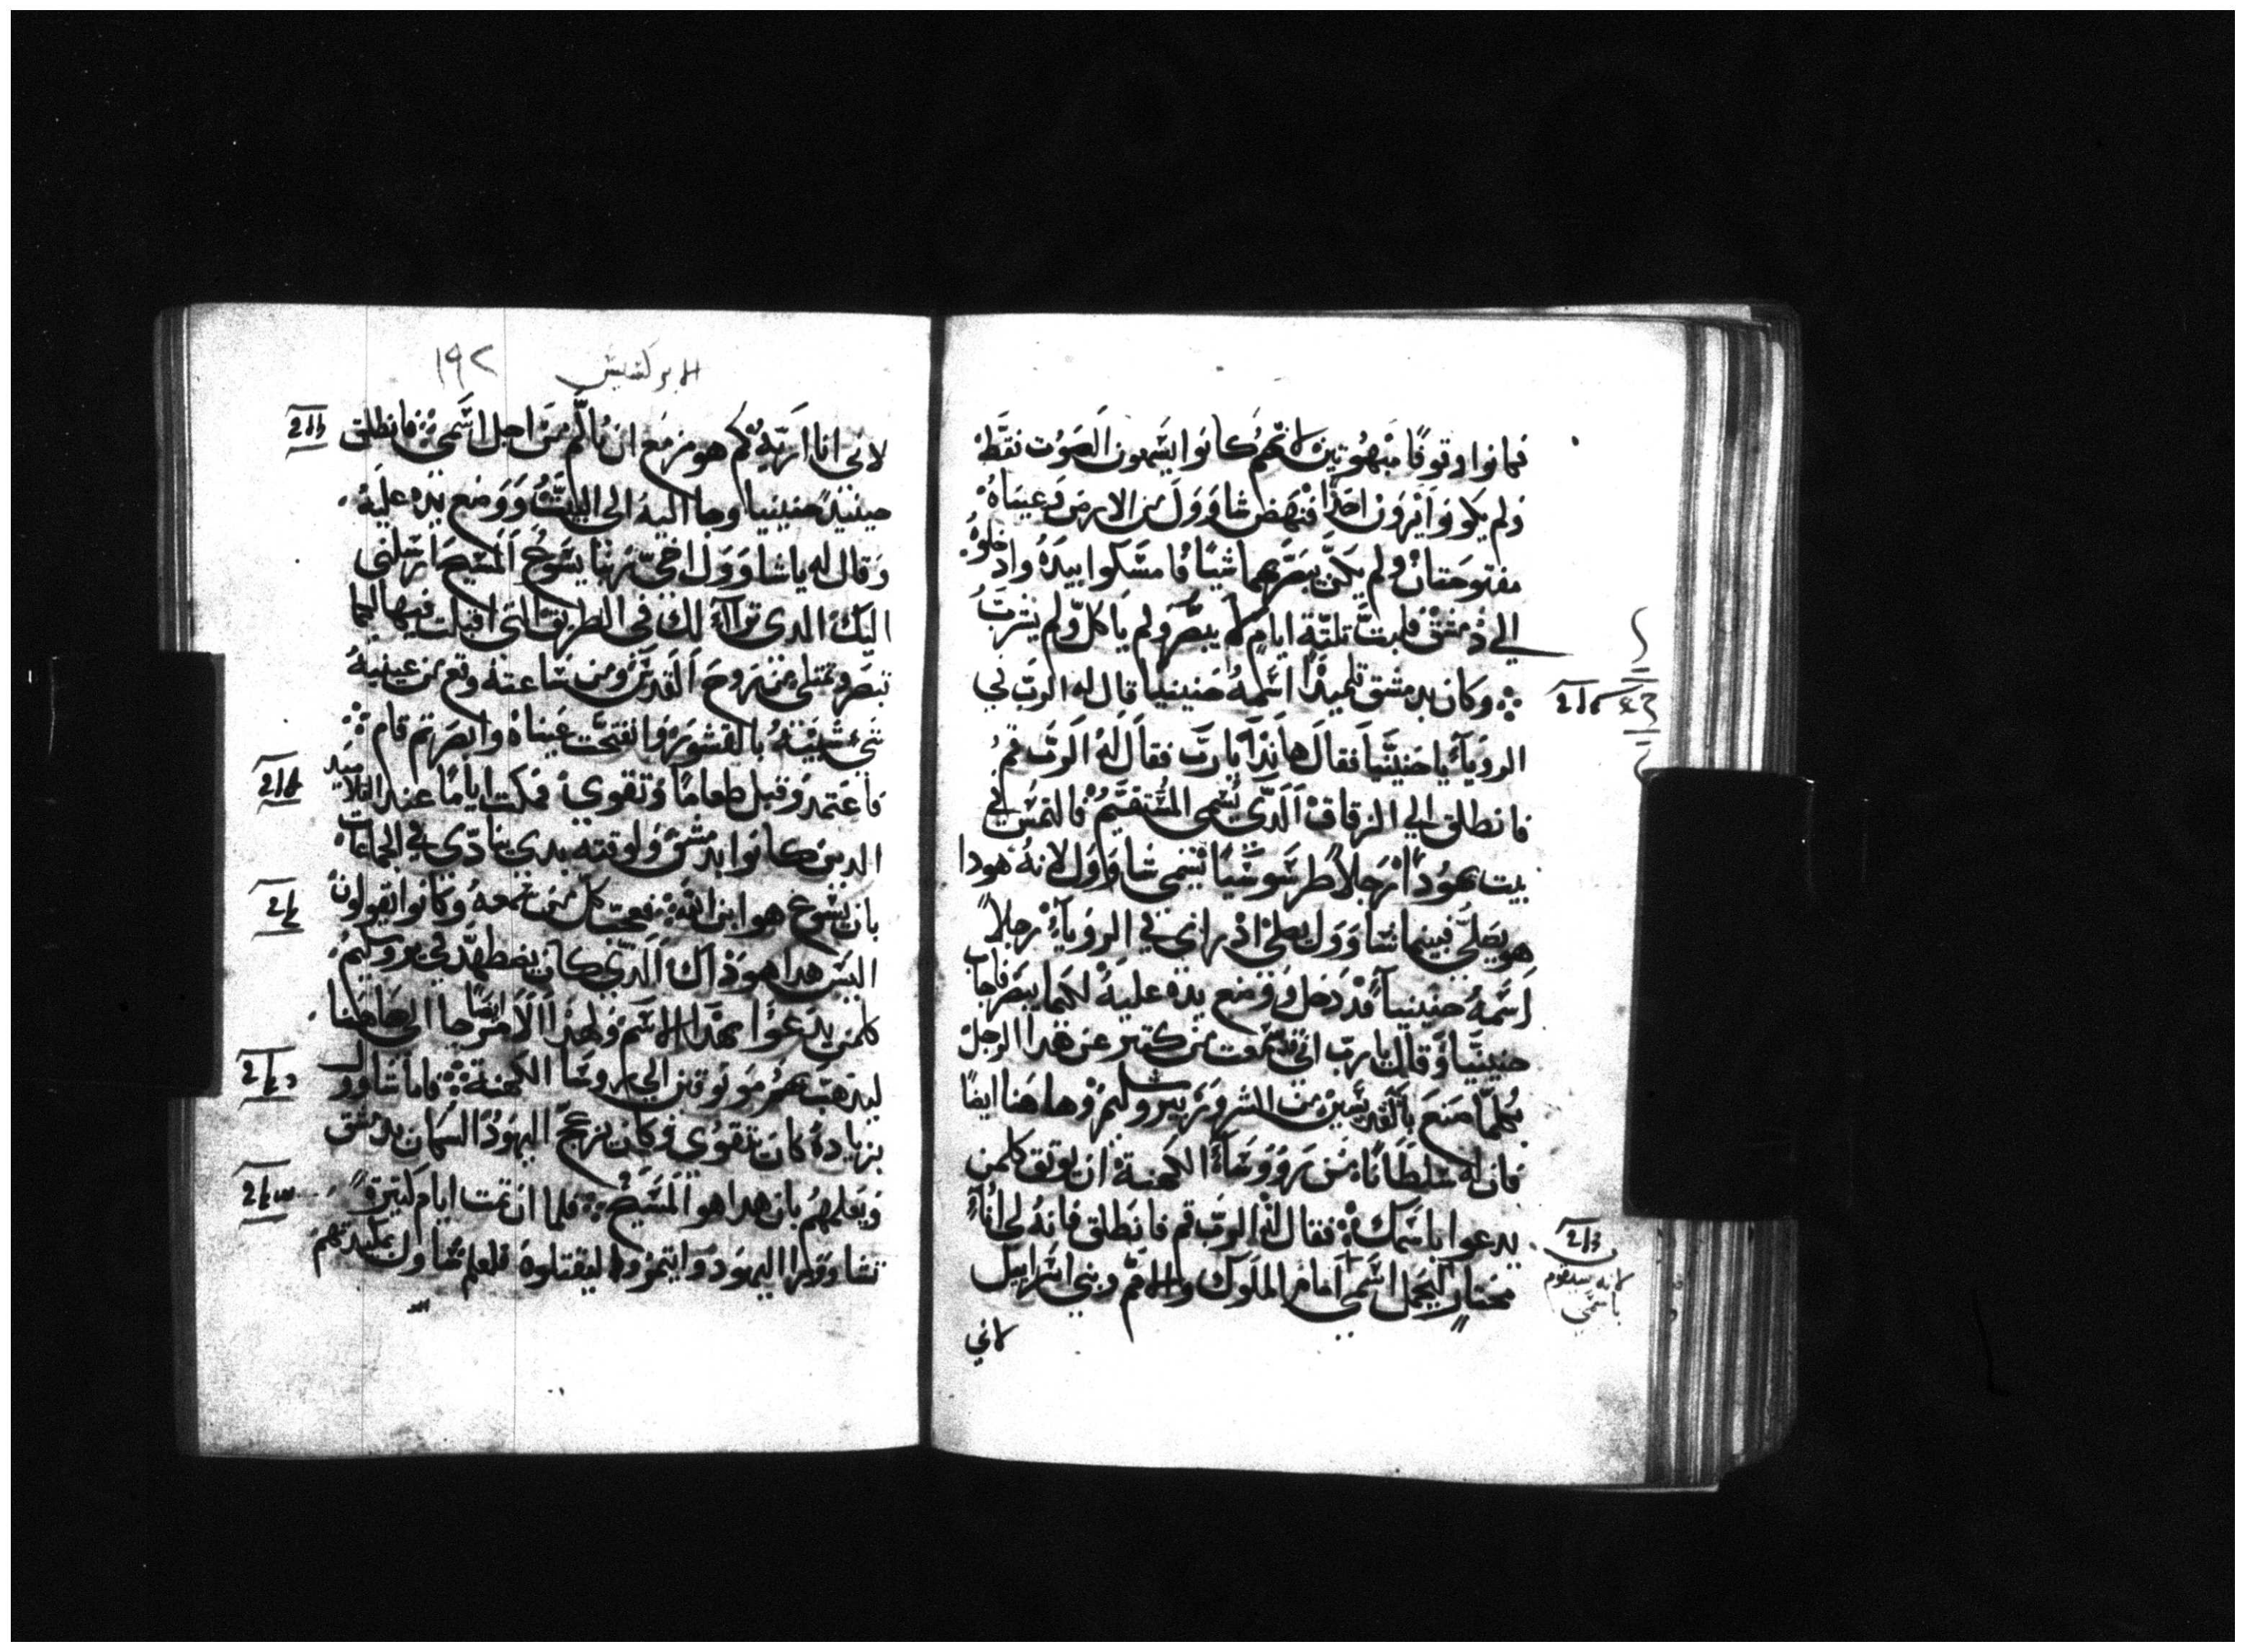 فكانوا وقوفًا مبهوتين لانهم كانوا يسمعون الصوت فقط
ولم يكونوا يرون احدًا فنهض شاوول من الارض وعيناه
مفتوحتان ولم يكن يبصر بهما شيئًا فامسكوا بيده وادخلوه
الي دمشق فلبث ثلثة ايام لا يبصر ولم ياكل ولم يشرب
وكان بدمشق تلميذًا اسمه حنينيا قال له الرب في
الروياء يا حنينيا فقال هانذا يا رب فقال له الرب قم
فانطلق الي الزقاق الذي يسمى المستقيم فالتمس في
بيت يهودا رجلاً طرسوسيًا يسمى شاوول لانه هودا
هو يصلي فبينما شاوول يصلي اذ راى في الروياء رجلاً
اسمه حنينيا قد دخل ووضع يده عليه لكيما يبصر فاجاب
حنينيا وقال يا رب اني قد سمعت من كثير عن هذا الرجل
كلما صنع بالقديسين من الشرور بيروشليم وهاهنا ايضًا
فان له سلطانًا من روساء الكهنة ان يوثق كلمن
يدعوا باسمك فقال له الرب قم فانطلق فانه لي اناء
مختار ليحمل اسمي امام الملوك والامم وبني اسراييل
لانه سيقوم
باسمي
لاني
الابركسيس ١٩٢
لاني انا اريه كم هو مزمع ان يالم من اجل اسمي فانطلق
حينيذ حنينيا وجا اليه الى البيت ووضع يده عليه
وقال له يا شاوول اخي ربنا يسوع المسيح ارسلني
اليك الدي تراأ لك في الطريق التي اقبلت فيها لكيما
تبصر وتمتلي من روح القدس ومن ساعته وقع من عينيه
شي شبيه بالقشور وانفتحت عيناه وابصر ثم قام
فاعتمد وقبل طعامًا وتقوي فمكث ايامًا عند التلاميد
الدين كانوا بدمشق ولوقته بدي ينادي في الجماعات
بان يسوع هو ابن الله فعجب كل من سمعه وكانوا يقولون
اليس هدا هو ذاك الذي كان يضطهد في يروسليم
كلمن يدعوا بهذا الاسم ولهذا الامر ايضًا جا الى هاهنا
ليذهب بهم موثوقين الي روسا الكهنة فاما شاوول
بزيادة كان يتقوي وكان يزعج اليهود السكان بدمشق
ويعلمهم بان هدا هو المسيح فلما ان تمت ايام كثيرة
تشاوروا اليهود وايتمروا ليقتلوه فعلم شاول بمكيدتهم